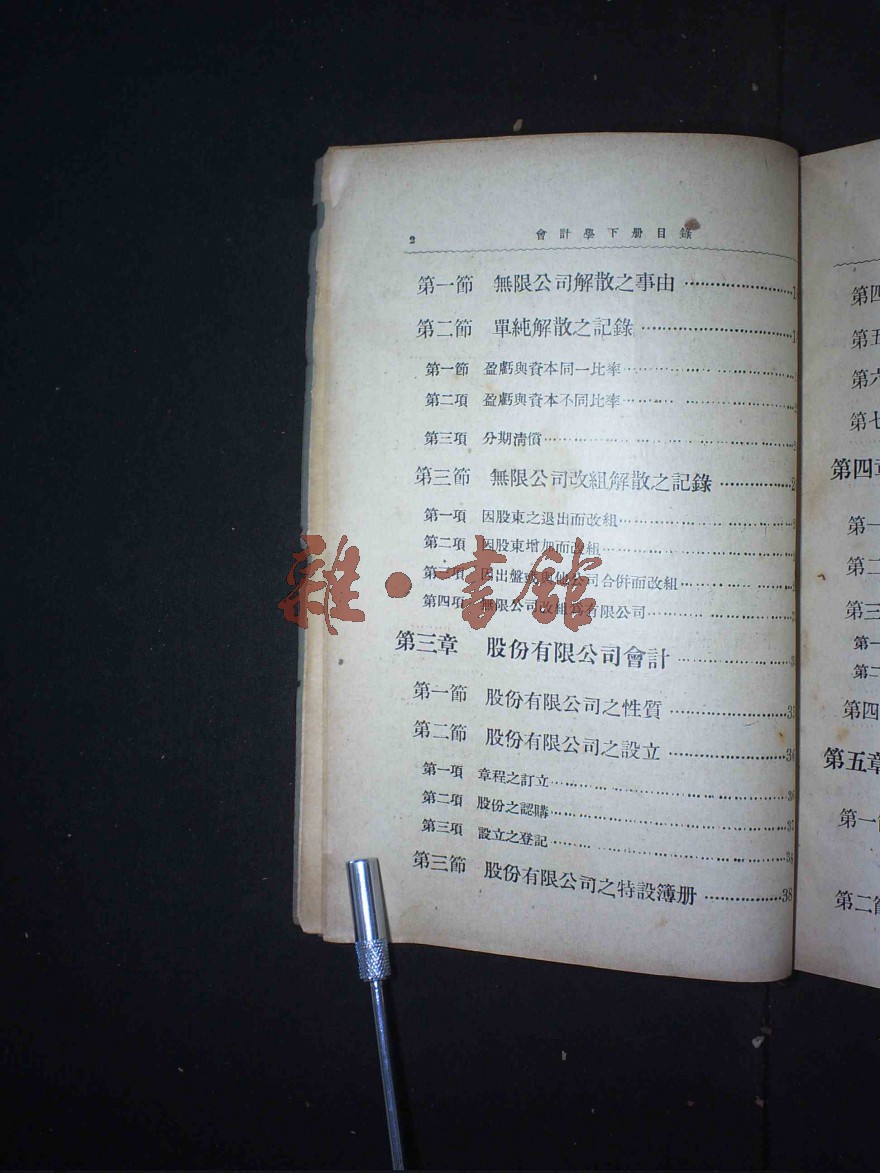 2 會計學下册目錄
第一節 無限公司解散之事由……1
第二節 單純解散之記錄……1
第一節 盈虧與資本同一比率……
第二項 盈虧與資本不同比率……
第三項 分期清償……
第三節 無限公司改組解散之記錄……2
第一項 因股東之退出而改組……
第二項 因股東增加而改組……
第三項 因出盤或與他公司合併而改組……
第四項 無限公司改組爲有限公司……
第三章 股份有限公司會計……3
第一節 股份有限公司之性質……35
第二節 股份有限公司之設立……36
第一項 章程之訂立……36
第二項 股份之認購……37
第三項 設立之登記……38
第三節 股份有限公司之特設簿册……38
雜·書館
第四
第五
第六
第七
第四章
第一
第二
第三
第一
第二
第四
第五章
第一節
第二節